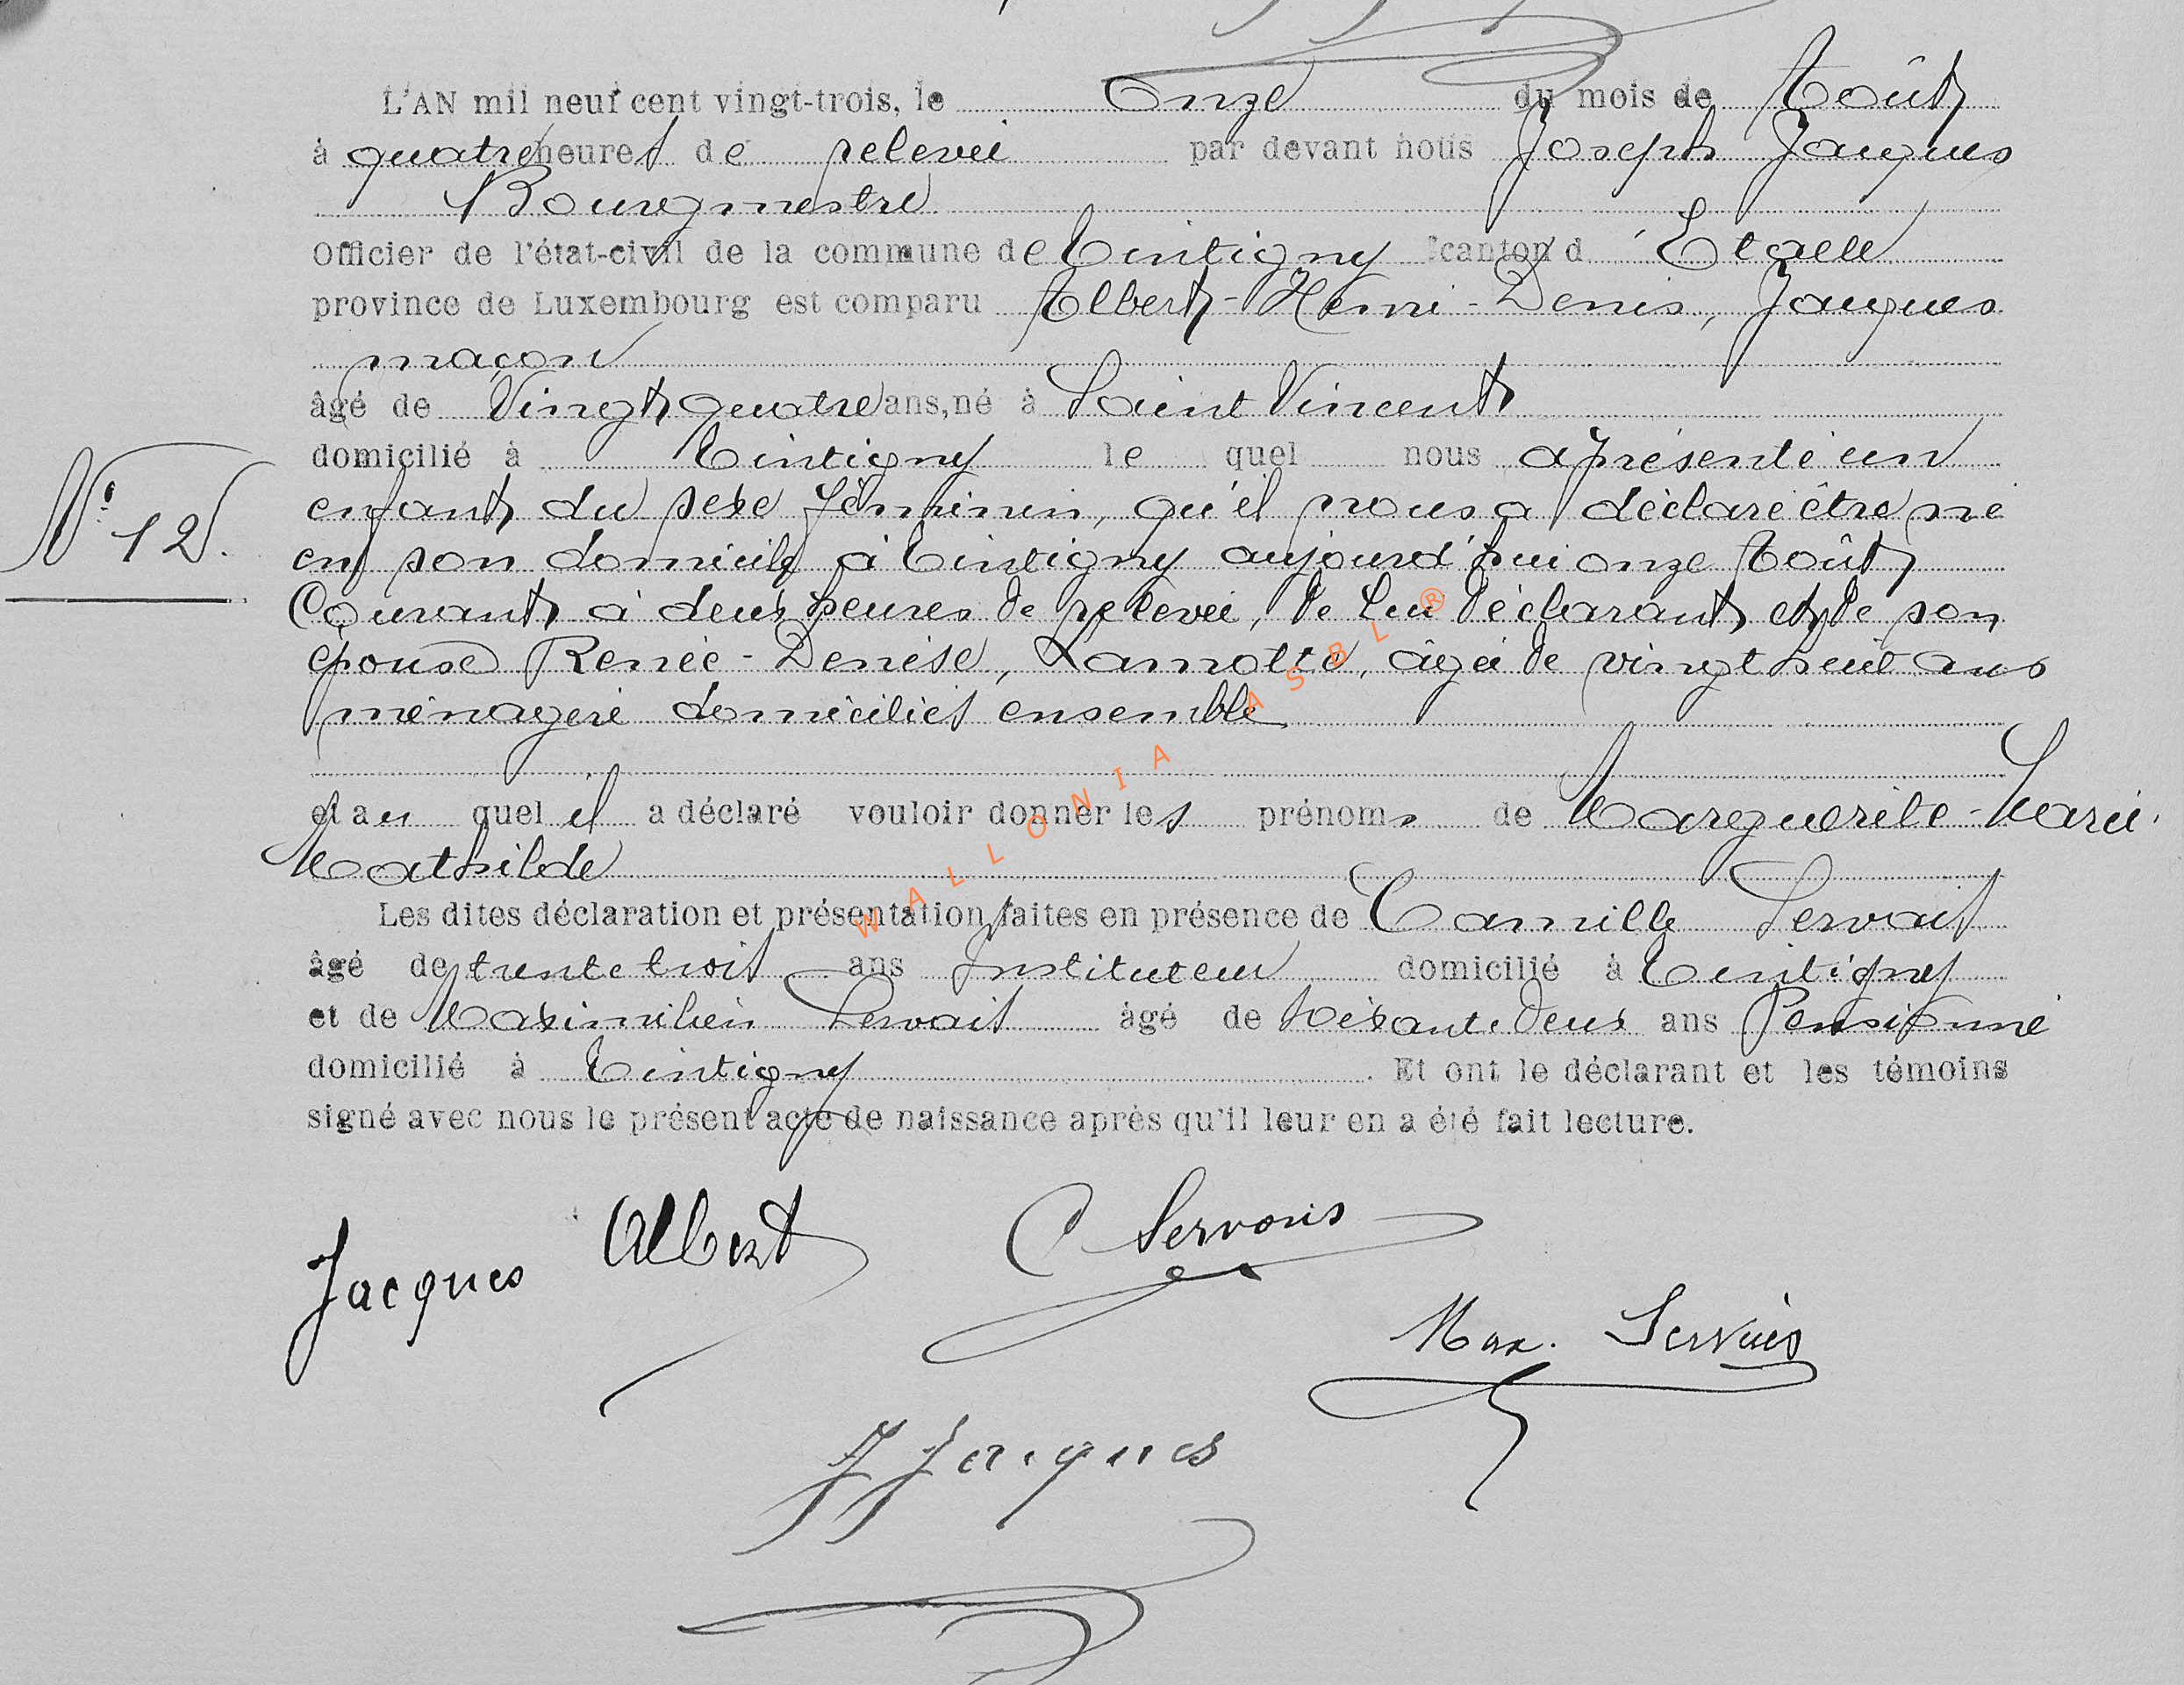 L'AN mil neuf cent vingt-trois, le Onze du mois de Août
à quatre heures de relevée par devant nous Joseph Jacques
Bourgmestre
Officier de l'état-civil de la commune de Tintigny canton d'Etalle
province de Luxembourg est comparu Albert-Henri-Denis, Jacques
maçon
âgé de Vingt quatre ans, né à Saint Vincent
domicilié à Tintigny le quel nous a présenté un
N° 12.
enfant du sexe féminin, qu'il nous a déclaré être né
en son domicile à Tintigny aujourd'hui onze Août
Courant à deux heures de relevée, de Lui déclarant et de son
épouse Renée-Denise, Lamotte, âgée de vingt huit ans
ménagère domiciliés ensemble
et au quel il a déclaré vouloir donner les prénoms de Marguerite-Marie.
Mathilde
Les dites déclaration et présentation faites en présence de Camille Servais
âgé de trente trois ans Instituteur domicilié à Tintigny
et de Maximilien Servais âgé de soixante deux ans Pensionné
domicilié à Tintigny. Et ont le déclarant et les témoins
signé avec nous le présent acte de naissance après qu'il leur en a été fait lecture.
Jacques Albert C Servais
Max. Servais
J Jacques
WALLONIA ASBL ®